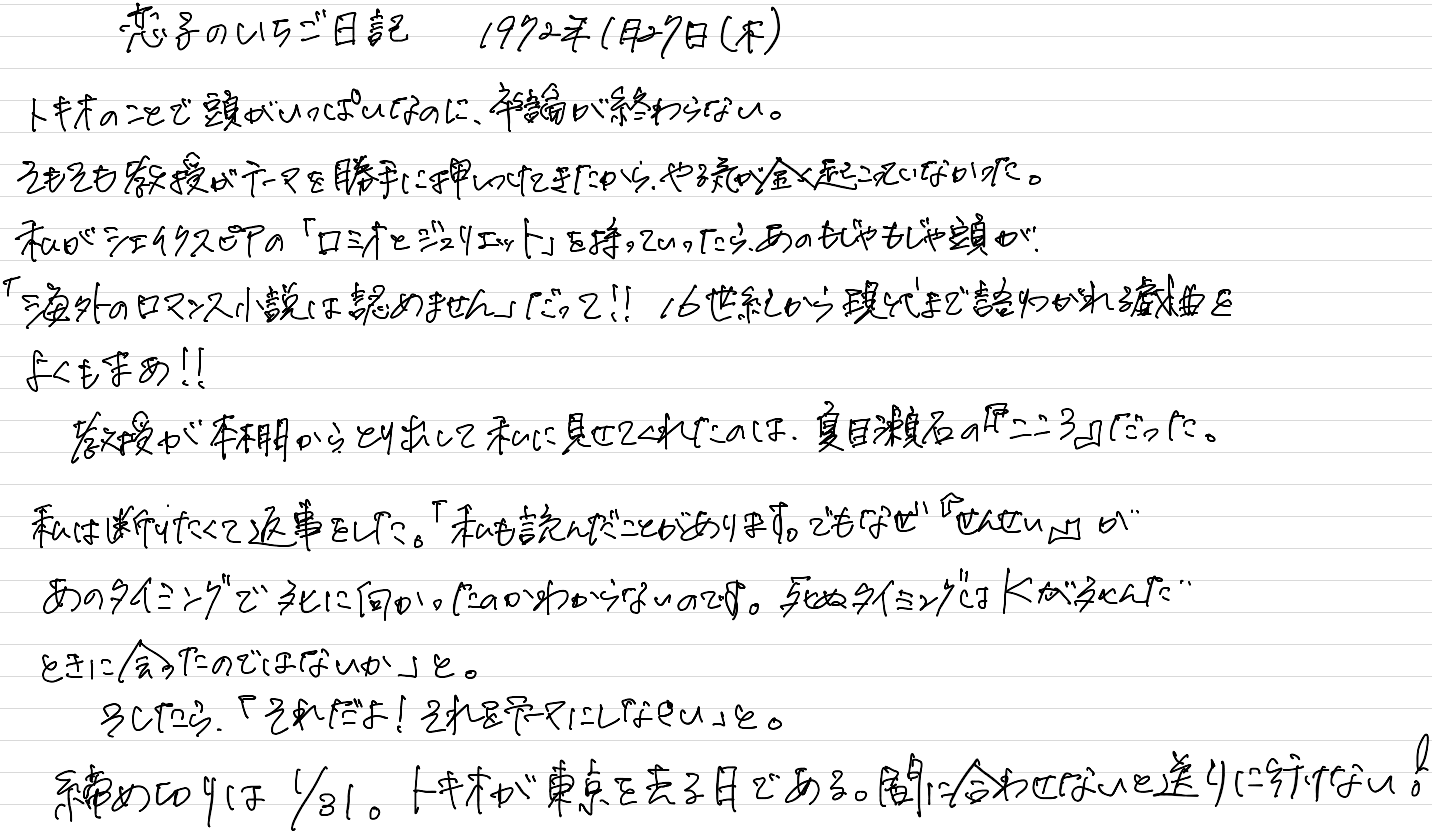 恋子のいちご日記　1972年1月27日(木)
トキオのことで頭がいっぱいなのに、卒論が終わらない。
そもそも教授がテーマを勝手に押しつけてきたから、やる気が全く起こっていなかった。
私がシェイクスピアの「ロミオとジュリエット」を持っていったら、あのもじゃもじゃ頭が、
「海外のロマンス小説は認めません」だって!! 16世紀から現代まで語りつがれる戯曲を
よくもまあ!!
教授が本棚からとり出して私に見せてくれたのは、夏目漱石の『こころ』だった。
私は断りたくて返事をした。「私も読んだことがあります。でもなぜ『せんせい』が
あのタイミングで死に向かったのかわからないのです。死ぬタイミングはKが死んだ
ときに会ったのではないか」と。
そしたら、「それだよ!それをテーマにしなさい」と。
締め切りは1/31。トキオが東京を去る日である。間に合わせないと送りに行けない!